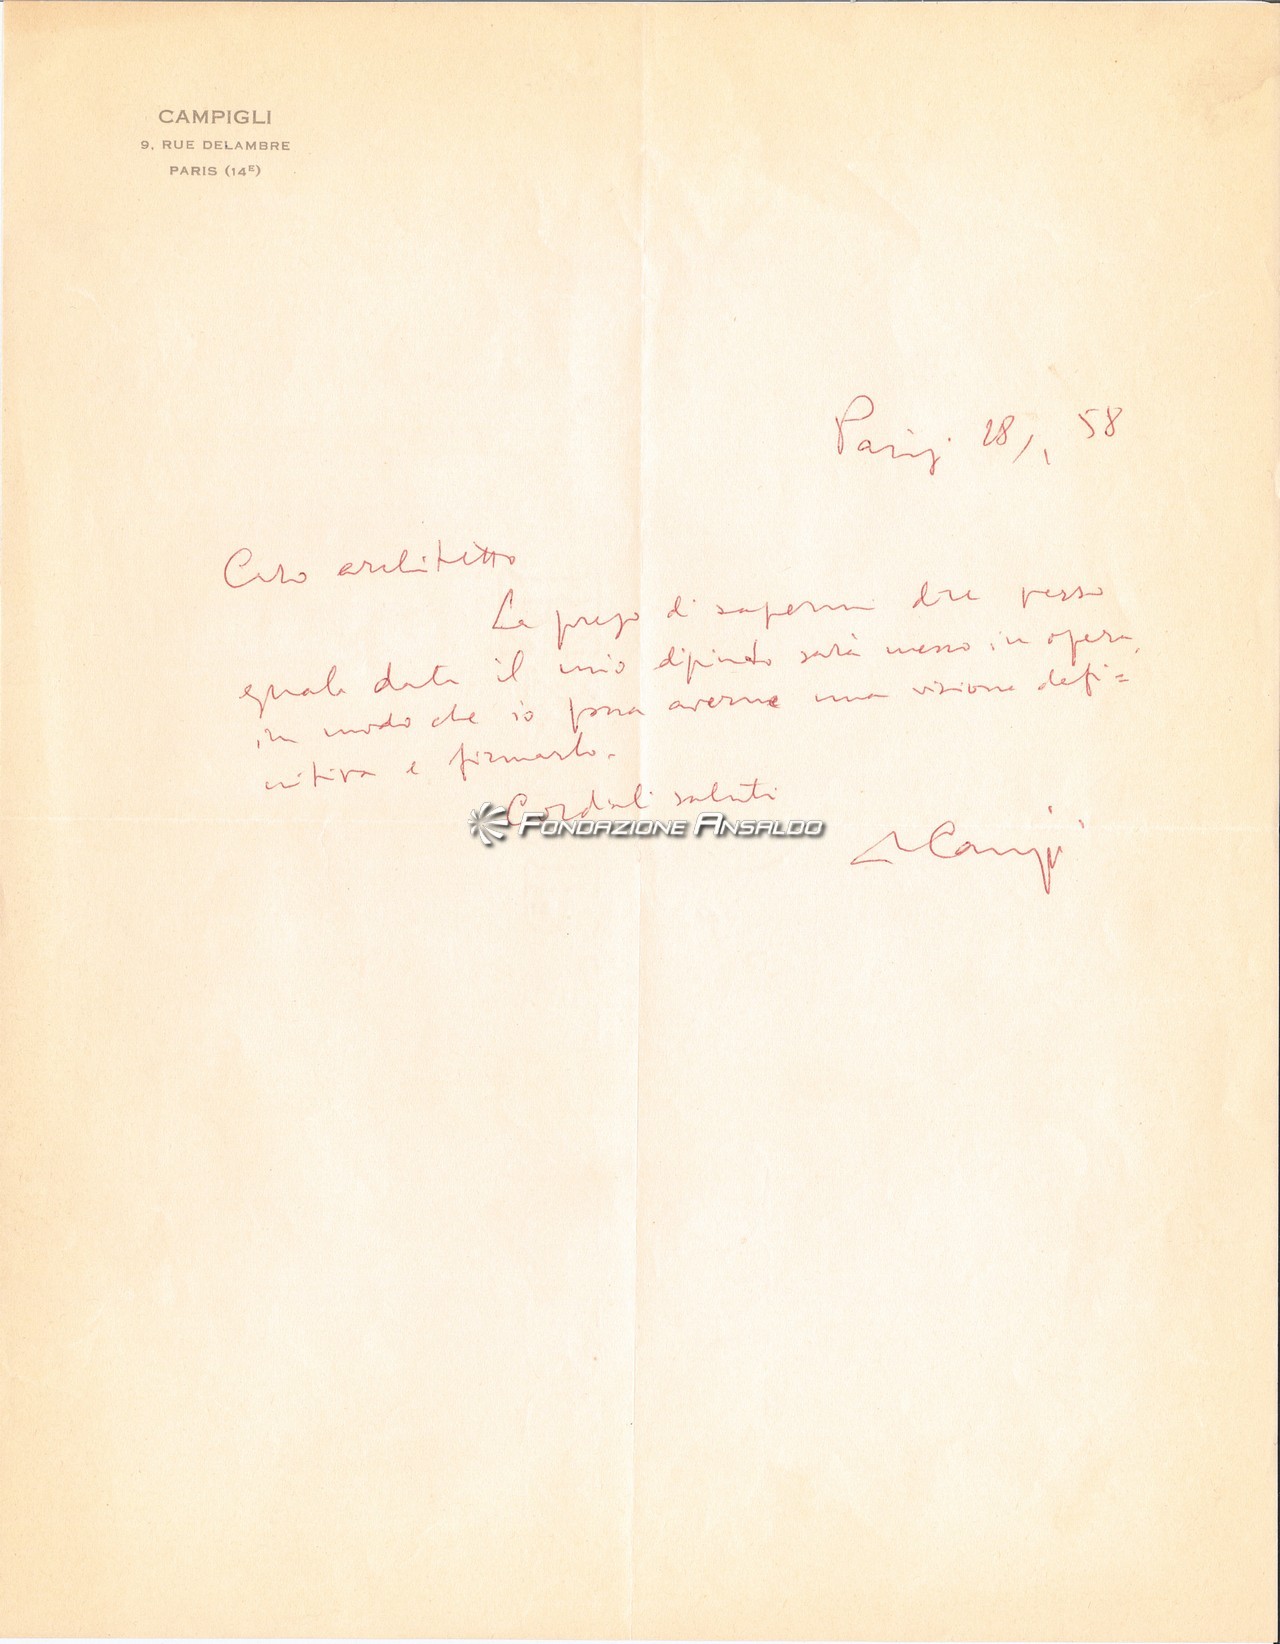 CAMPIGLI
9, RUE DELAMBRE
PARIS (14E)
Parigi 28/1 58
Caro architetto
La prego di sapermi dire verso
quale data il mio dipinto sarà messo in opera,
in modo che io possa averne una visione defi=
nitiva e firmarlo.
Cordiali saluti
FONDAZIONE ANSALDO
Campigli